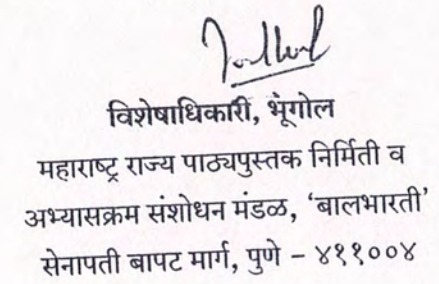 विशेषाधिकारी, भूगोल
महाराष्ट्र राज्य पाठ्यपुस्तक निर्मिती व
अभ्यासक्रम संशोधन मंडळ, ‘बालभारती’
सेनापती बापट मार्ग, पुणे – ४११००४